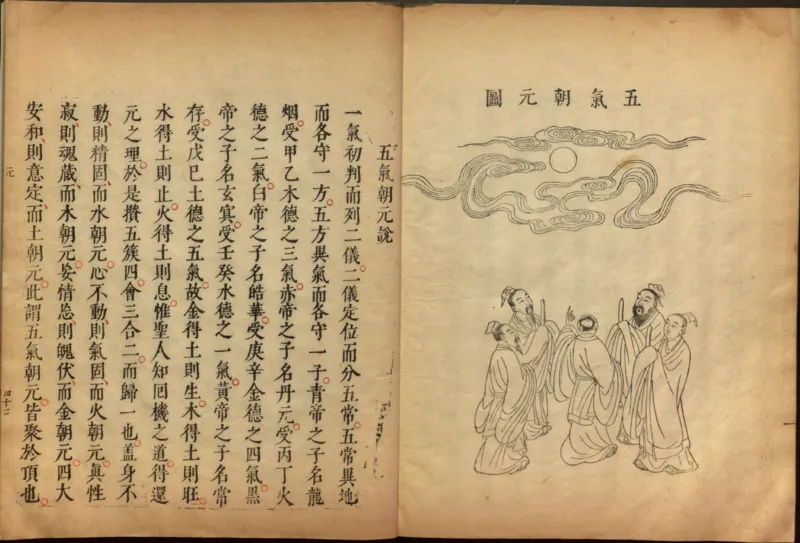 五氣朝元圖
五氣朝元說
一氣初判而列二儀二儀定位而分五常五常異地
而各守一方五方異氣而各守一子青帝之子名龍
烟受甲乙木德之三氣赤帝之子名丹元受丙丁火
德之二氣白帝之子名皓華受庚辛金德之四氣黑
帝之子名玄冥受壬癸水德之一氣黃帝之子名常
存受戊巳土德之五氣故金得土則生木得土則旺
水得土則止火得土則息惟聖人知回機之道得還
元之理於是攢五簇四會三合二而歸一也蓋身不
動則精固而水朝元心不動則氣固而火朝元眞性
寂則魂藏而木朝元妄情忘則魄伏而金朝元四大
安和則意定而土朝元此謂五氣朝元皆聚於頂也
元
四十二